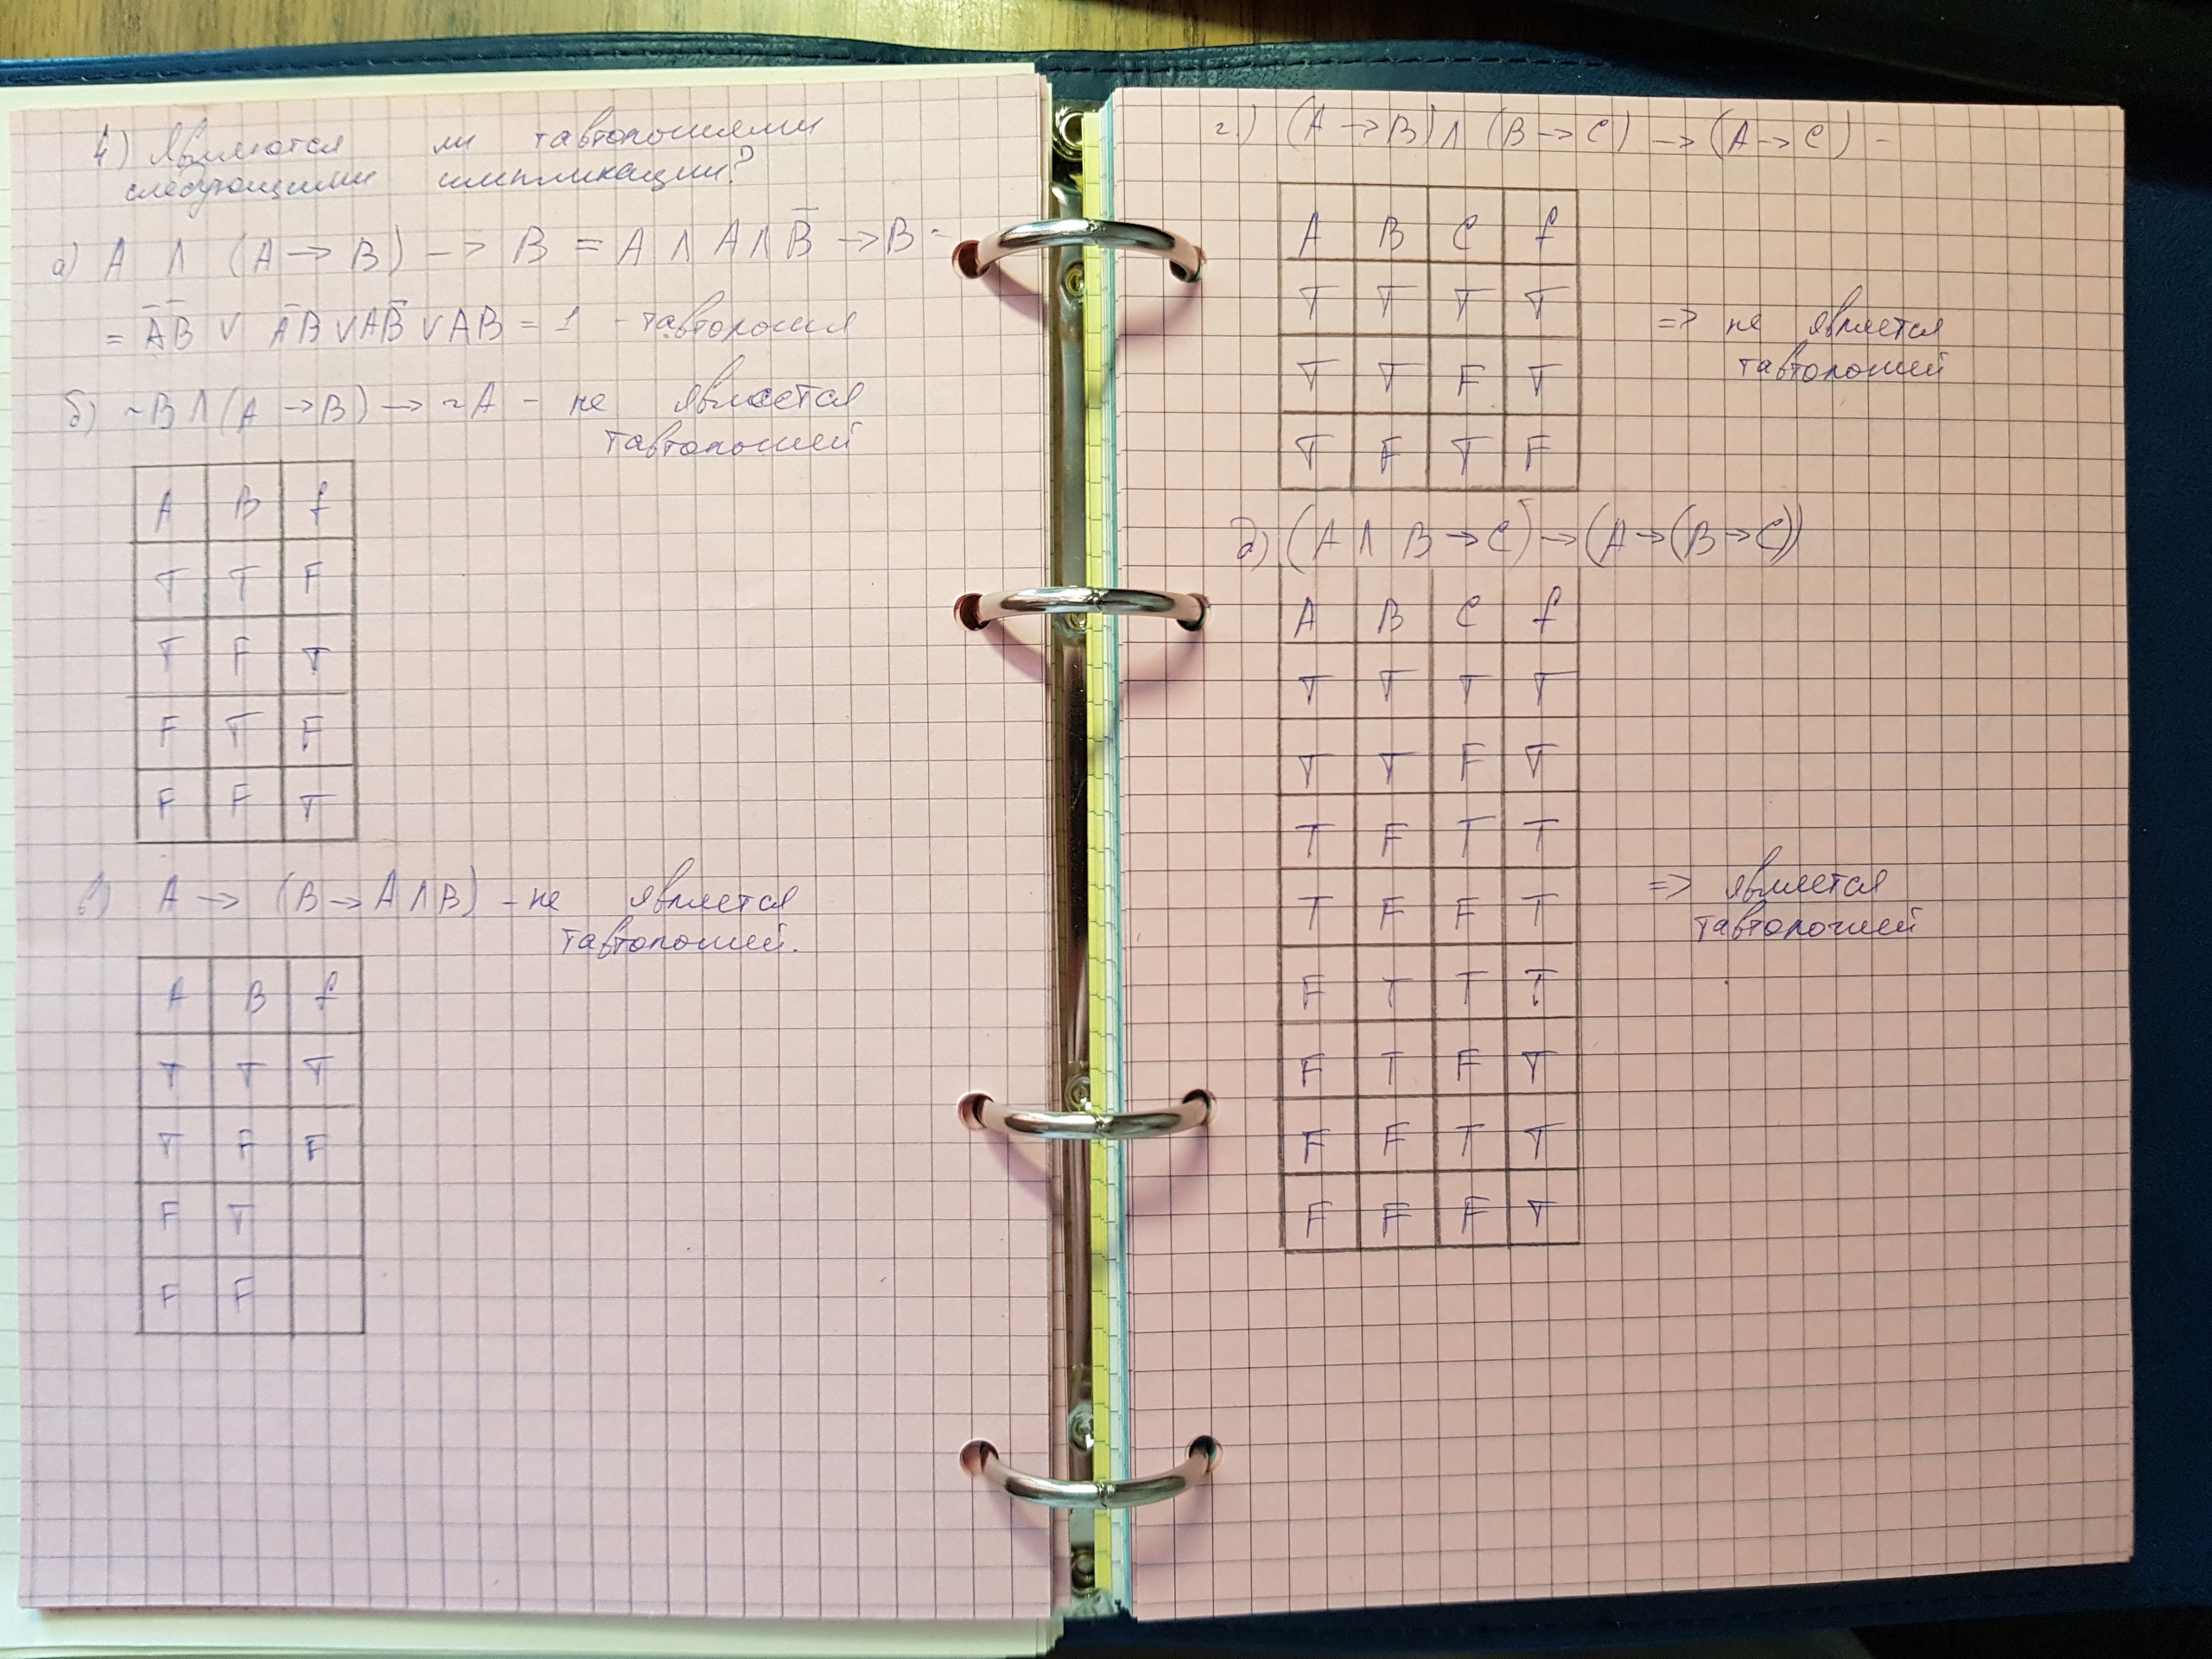 4) Являются ли тавтологиями
следующими импликации?
а) A ∧ (A → B) → B = A ∧ A ∧ B̅ → B =
= A̅B̅ ∨ A̅B ∨ AB̅ ∨ AB = 1 - тавтология
б) ~B ∧ (A → B) → ~A - не является
тавтологией
A B f
T T F
T F T
F T F
F F T
в) A → (B → A ∧ B) - не является
тавтологией.
A B f
T T T
T F F
F T
F F
г.) (A → B) ∧ (B → C) → (A → C) -
A B C f
T T T T
T T F T
T F T F
=> не является
тавтологией
д) (A ∧ B → C) → (A → (B → C))
A B C f
T T T T
T T F T
T F T T
T F F T
F T T T
F T F T
F F T T
F F F T
=> является
тавтологией